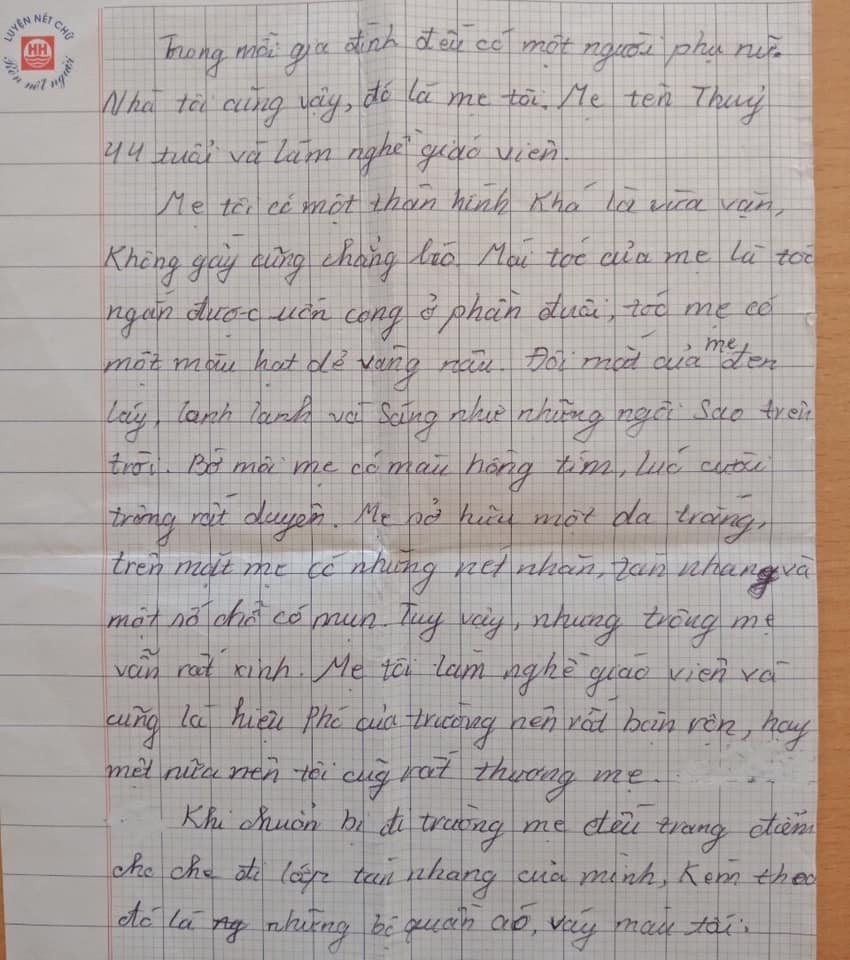 LUYỆN NÉT CHỮ
HH
Rèn nết người
Trong mỗi gia đình đều có một người phụ nữ.
Nhà tôi cũng vậy, đó là mẹ tôi. Mẹ tên Thuỷ
44 tuổi và làm nghề giáo viên.
Mẹ tôi có một thân hình khá là vừa vặn,
không gầy cũng chẳng béo. Mái tóc của mẹ là tóc
ngắn được uốn cong ở phần đuôi, tóc mẹ có
một màu hạt dẻ vàng nâu. Đôi mắt của mẹ đen
láy, lanh lanh và sáng như những ngôi sao trên
trời. Bờ môi mẹ có màu hồng tím, lúc cười
trông rất duyên. Mẹ sở hữu một da trắng,
trên mặt mẹ có những nét nhăn, tàn nhang và
một số chỗ có mụn. Tuy vậy, nhưng trông mẹ
vẫn rất xinh. Mẹ tôi làm nghề giáo viên và
cũng là hiệu phó của trường nên rất bận rộn, hay
mệt nữa nên tôi cũg rất thương mẹ.
Khi chuẩn bị đi trường mẹ đều trang điểm
cho che đi lớp tàn nhang của mình, kèm theo
đó là những bộ quần áo, váy màu tối.